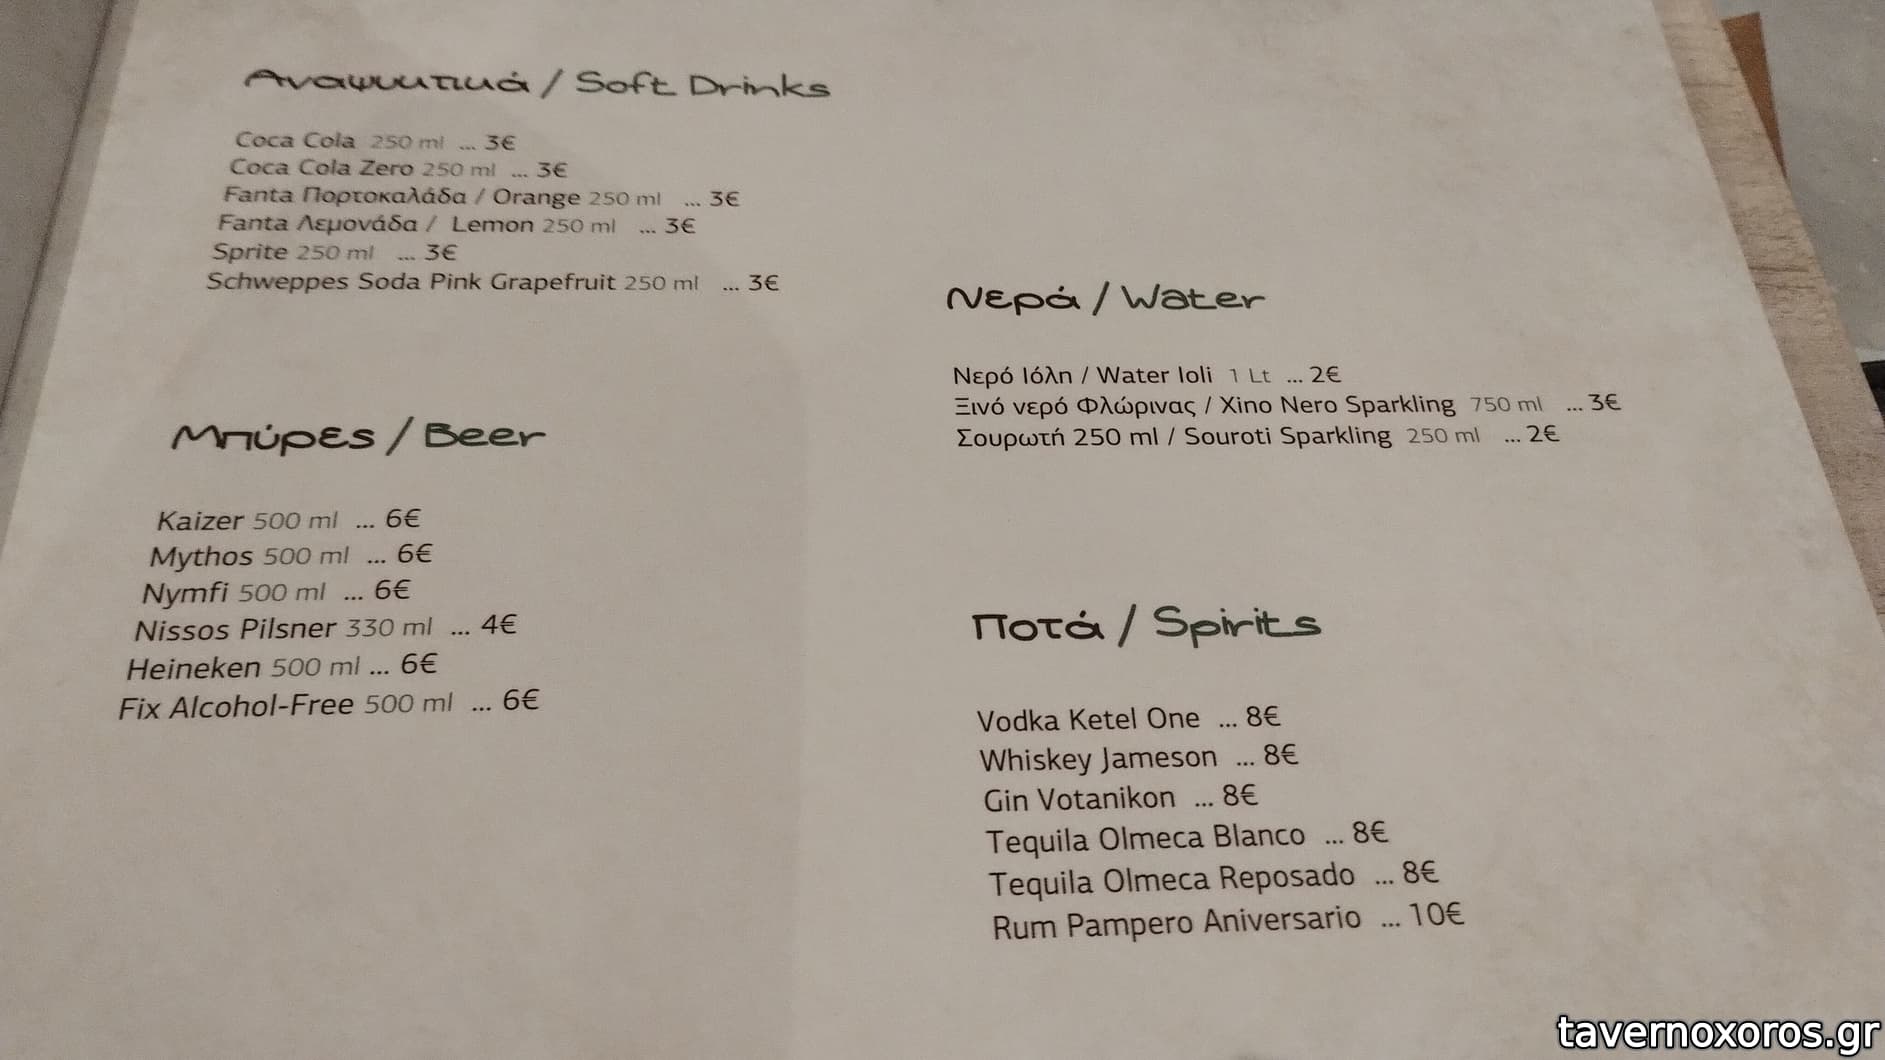 Αναψυκτικά / Soft Drinks
Coca Cola 250 ml ... 3€
Coca Cola Zero 250 ml ... 3€
Fanta Πορτοκαλάδα / Orange 250 ml ... 3€
Fanta Λεμονάδα / Lemon 250 ml ... 3€
Sprite 250 ml ... 3€
Schweppes Soda Pink Grapefruit 250 ml ... 3€
Μπύρες / Beer
Kaizer 500 ml ... 6€
Mythos 500 ml ... 6€
Nymfi 500 ml ... 6€
Nissos Pilsner 330 ml ... 4€
Heineken 500 ml ... 6€
Fix Alcohol-Free 500 ml ... 6€
Νερά / Water
Νερό Ιόλη / Water Ioli 1 Lt ... 2€
Ξινό νερό Φλώρινας / Xino Nero Sparkling 750 ml ... 3€
Σουρωτή 250 ml / Souroti Sparkling 250 ml ... 2€
Ποτά / Spirits
Vodka Ketel One ... 8€
Whiskey Jameson ... 8€
Gin Votanikon ... 8€
Tequila Olmeca Blanco ... 8€
Tequila Olmeca Reposado ... 8€
Rum Pampero Aniversario ... 10€
tavernoxoros.gr